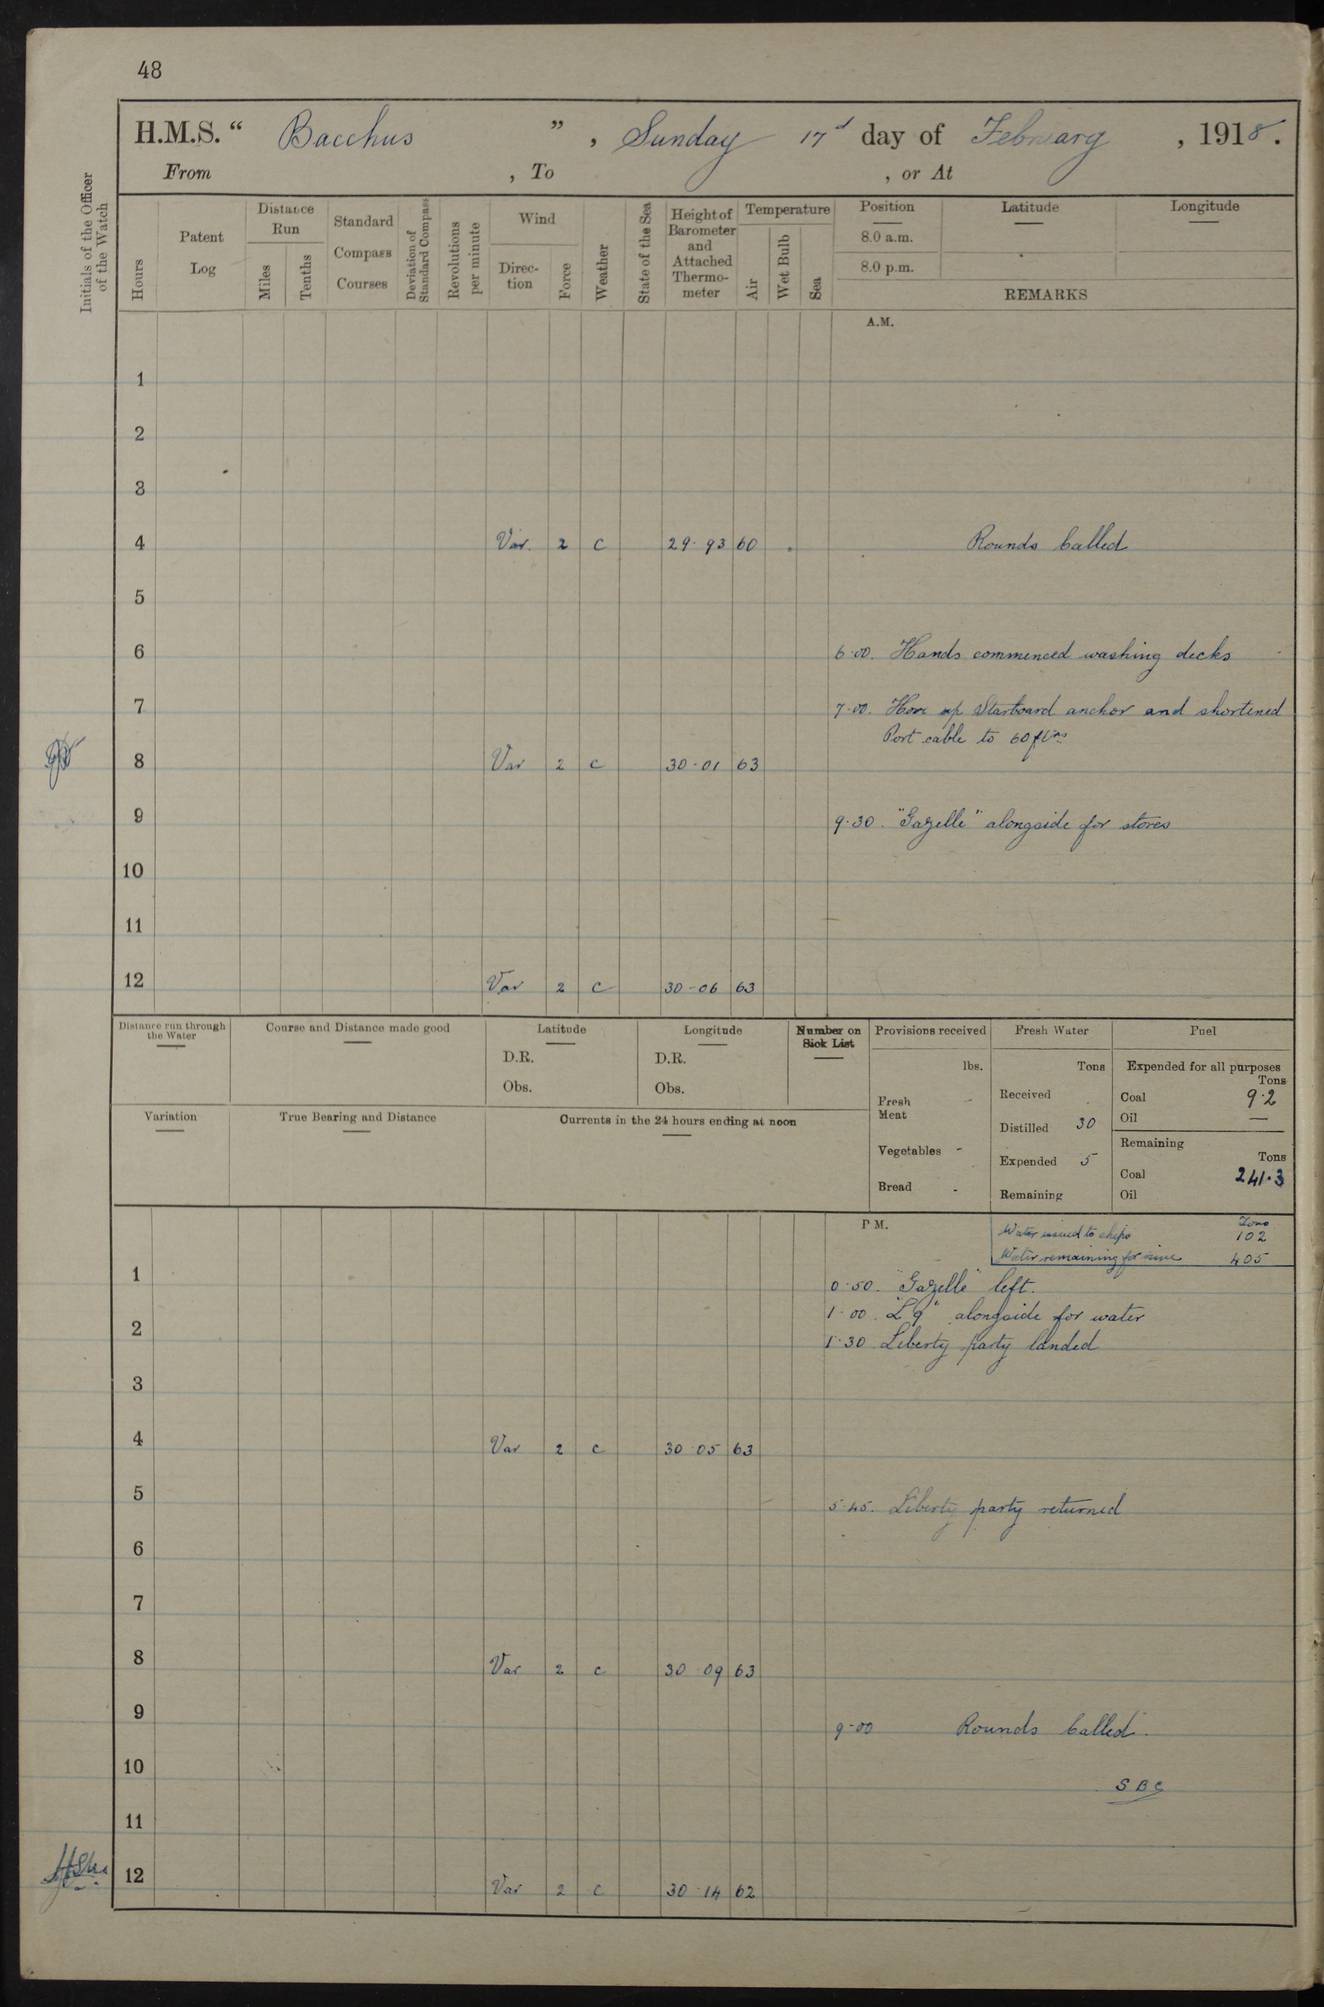 48
H.M.S. “ Bacchus ” , Sunday 17d day of February , 1918.
From , To , or At
Initials of the Officer of the Watch
Hours
Patent Log
Distance Run
Miles
Tenths
Standard Compass Courses
Deviation of Standard Compass
Revolutions per minute
Wind
Direc-tion
Force
Weather
State of the Sea
Height of Barometer and Attached Thermo-meter
Temperature
Air
Wet Bulb
Sea
Position Latitude Longitude
8.0 a.m.
8.0 p.m.
REMARKS
A.M.
1
2
3
4 Var. 2 c 29.93 60 Rounds Called
5
6 6.00. Hands commenced washing decks
7 7.00. Hove up Starboard anchor and shortened
Port cable to 60 fms
8 Var 2 c 30.01 63
9 9.30. "Gazelle" alongside for stores
10
11
12 Var 2 c 30-06 63
Distance run through the Water
Course and Distance made good
Latitude
D.R.
Obs.
Longitude
D.R.
Obs.
Number on Sick List
Provisions received
lbs.
Fresh Meat -
Vegetables -
Bread -
Fresh Water
Tons
Received
Distilled 30
Expended 5
Remaining
Fuel
Expended for all purposes
Tons
Coal 9.2
Oil —
Remaining
Tons
Coal 241.3
Oil
Variation
True Bearing and Distance
Currents in the 24 hours ending at noon
P M.
Tons
Water issued to ships 102
Water remaining for issue 405
1 0.50. "Gazelle" left.
1.00. "L 9" alongside for water
2 1.30 Liberty party landed
3
4 Var 2 c 30 05 63
5 5.45. Liberty party returned
6
7
8 Var 2 c 30 09 63
9 9-00 Rounds Called.
10 SBC
11
12 Var 2 c 30.14 62